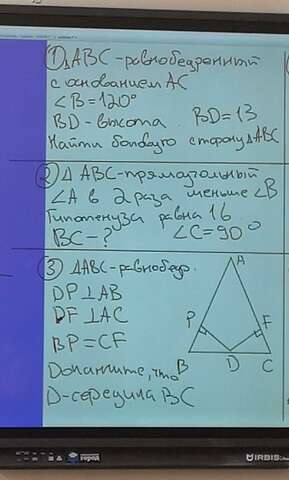 ① △ABC - равнобедренный
с основанием AC
∠B = 120°
BD - высота. BD = 13
Найти боковую сторону △ABC
② △ ABC - прямоугольный
∠A в 2 раза меньше ∠B
Гипотенуза равна 16
BC - ? ∠C = 90°
③ △ABC - равнобедр.
DP ⊥ AB
DF ⊥ AC
BP = CF
Докажите, что
D - середина BC
A
P
F
B
D
C
город
IRBIS